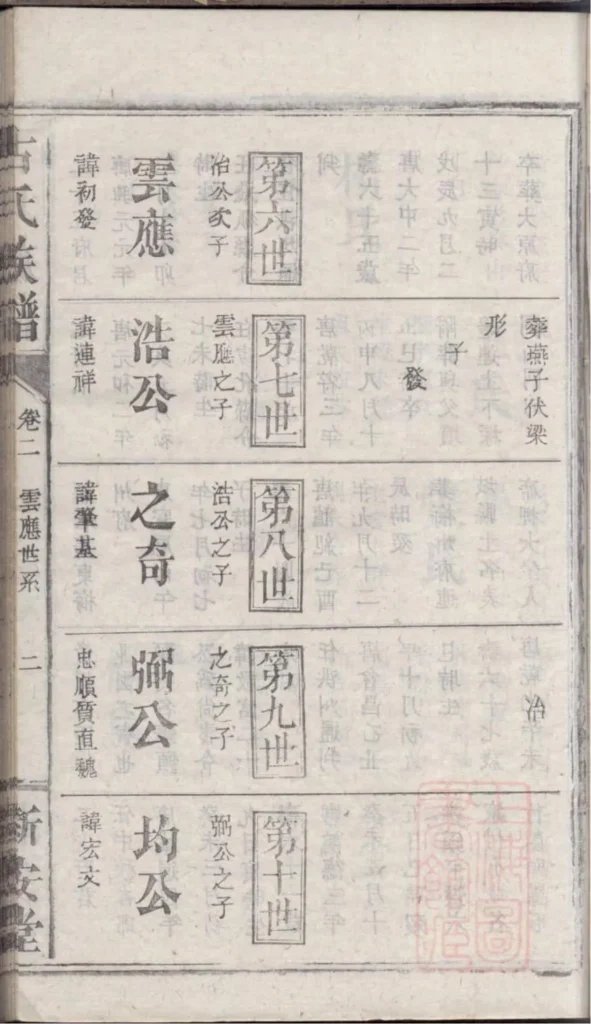 第六世
冶公次子
雲應
諱初發
葬燕子伏梁
形
子
發
第七世
雲應之子
浩公
諱連祥
第八世
浩公之子
之奇
諱肇基
冶
第九世
之奇之子
弼公
忠順質直魏
第十世
弼公之子
均公
諱宏文
古氏族譜 卷二 雲應世系 二 新安堂